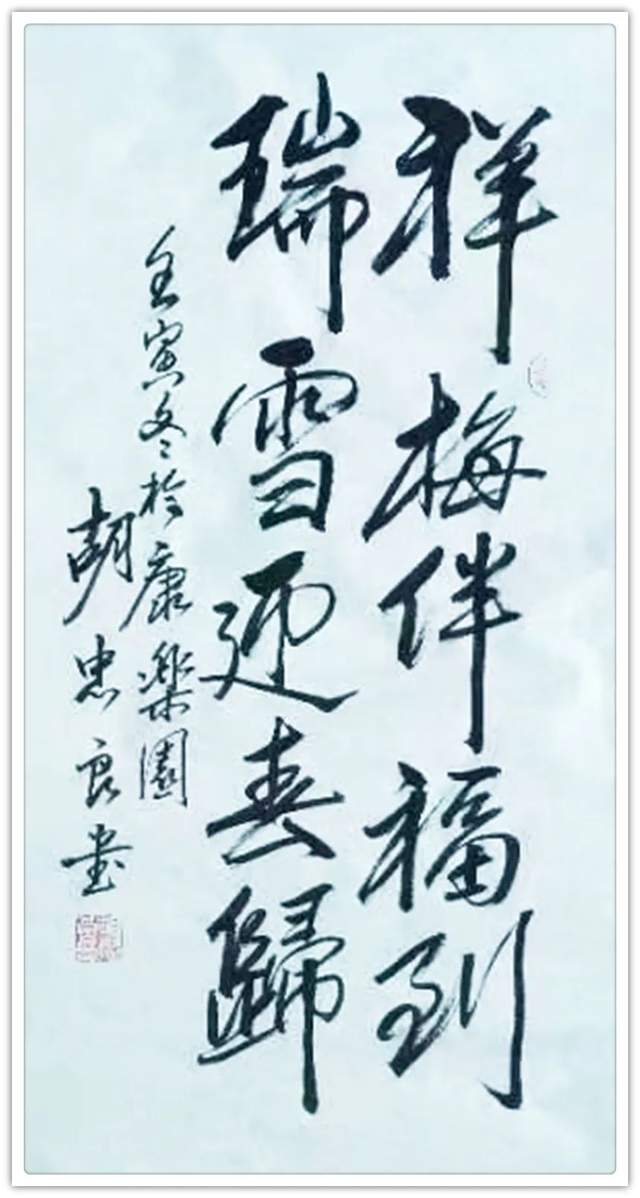 祥梅伴福到
瑞雪迎春歸
壬寅冬於康樂園
胡忠良書